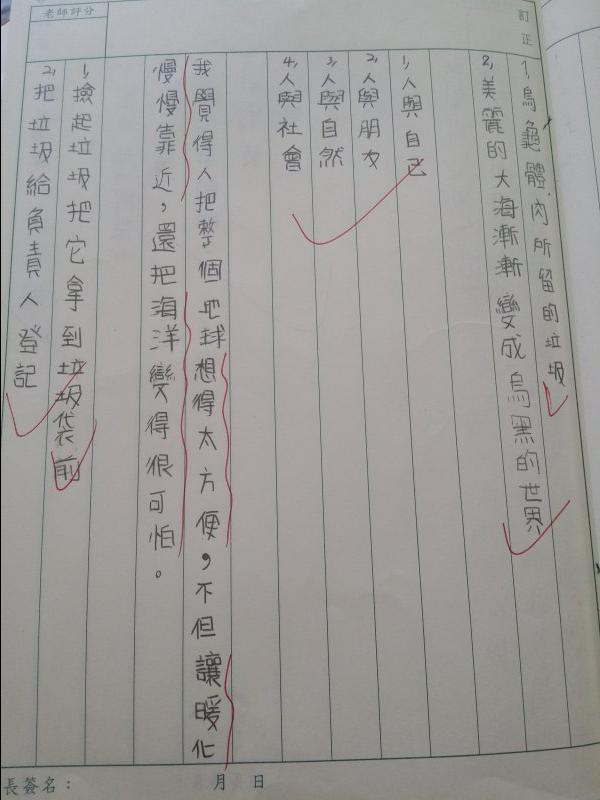 老師評分
訂正
1、烏龜體肉所留的垃圾
2、美麗的大海漸漸變成烏黑的世界
1、人與自己
2、人與朋友
3、人與自然
4、人與社會
我覺得人把整個地球想得太方便，不但讓暖化
慢慢靠近，還把海洋變得很可怕。
1、撿起垃圾把它拿到垃圾袋前
2、把垃圾給負責人登記
長簽名：
月 日